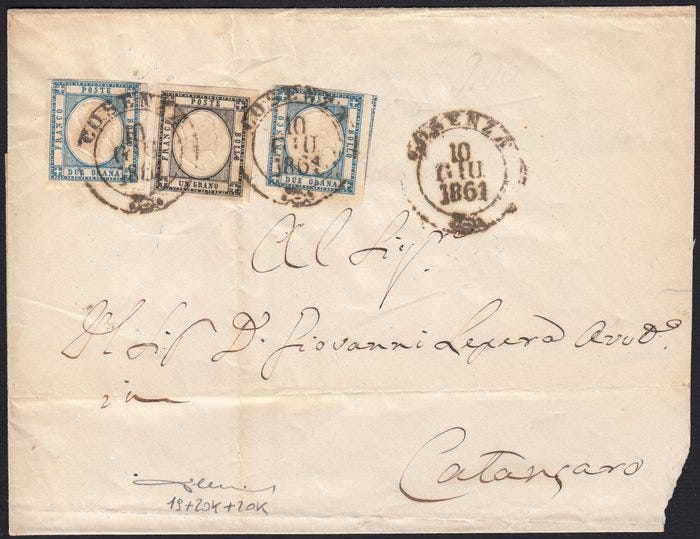 POSTE
FRANCO
BOLLO
DUE GRANA
POSTE
FRANCO
BOLLO
UN GRANO
POSTE
FRANCO
BOLLO
DUE GRANA
COSENZA
10
GIU
1861
COSENZA
10
GIU
1861
COSENZA
10
GIU
1861
Al Sig.
Al Sig. D. Giovanni Leperà Avv.to
in
Catanzaro
19+20K+20K